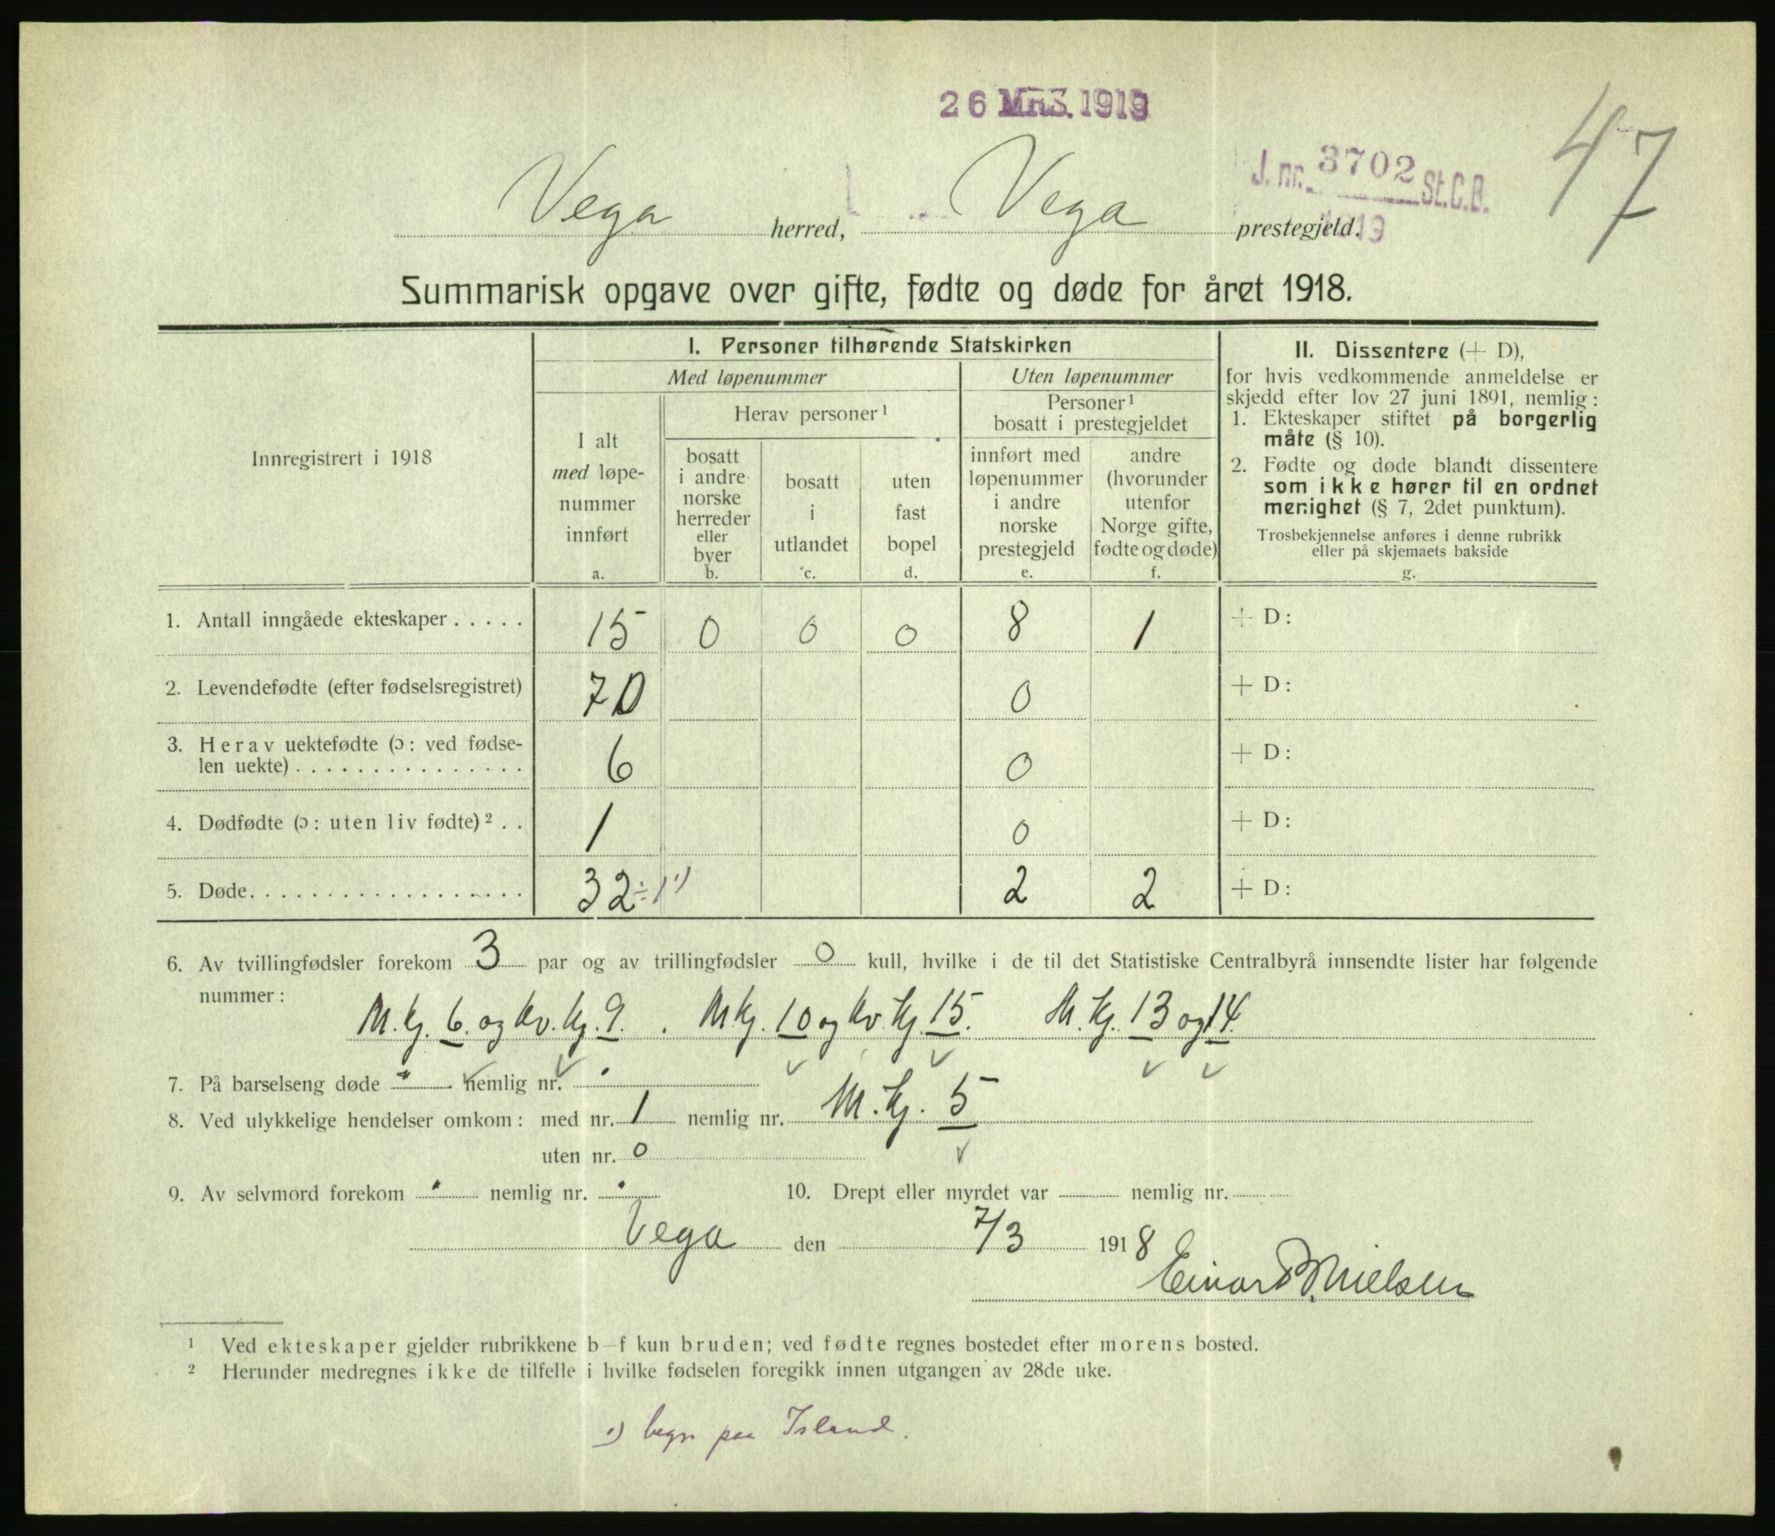 26 MRS. 1919
47
J. nr. 3702 St.C.B.
Vega herred, Vega prestegjeld.
Summarisk opgave over gifte, fødte og døde for året 1918.
Innregistrert i 1918
I. Personer tilhørende Statskirken
Med løpenummer
Uten løpenummer
I alt
med løpe-
nummer
innført
a.
Herav personer¹
bosatt
i andre
norske
herreder
eller
byer
b.
bosatt
i
utlandet
c.
uten
fast
bopel
d.
Personer¹
bosatt i prestegjeldet
innført med
løpenummer
i andre
norske
prestegjeld
e.
andre
(hvorunder
utenfor
Norge gifte,
fødte og døde)
f.
II. Dissentere (+ D),
for hvis vedkommende anmeldelse er
skjedd efter lov 27 juni 1891, nemlig:
1. Ekteskaper stiftet på borgerlig
måte (§ 10).
2. Fødte og døde blandt dissentere
som ikke hører til en ordnet
menighet (§ 7, 2det punktum).
Trosbekjennelse anføres i denne rubrikk
eller på skjemaets bakside
g.
1. Antall inngåede ekteskaper..... 15 0 0 0 8 1 + D:
2. Levendefødte (efter fødselsregistret) 70 0 + D:
3. Herav uektefødte (ɔ: ved fødse-
len uekte)............... 6 0 + D:
4. Dødfødte (ɔ: uten liv fødte)².. 1 0 + D:
5. Døde.................. 32 ÷1¹) 2 2 + D:
6. Av tvillingfødsler forekom 3 par og av trillingfødsler 0 kull, hvilke i de til det Statistiske Centralbyrå innsendte lister har følgende
nummer:
M.kj. 6. og Kv.kj. 9. M.kj. 10 og Kv.kj. 15. M.kj. 13 og 14.
7. På barselseng døde " nemlig nr. "
8. Ved ulykkelige hendelser omkom: med nr. 1 nemlig nr. M.kj. 5
uten nr. 0
9. Av selvmord forekom " nemlig nr. " 10. Drept eller myrdet var nemlig nr.
Vega den 7/3 1918
Einar Nielsen
¹ Ved ekteskaper gjelder rubrikkene b–f kun bruden; ved fødte regnes bostedet efter morens bosted.
² Herunder medregnes ikke de tilfelle i hvilke fødselen foregikk innen utgangen av 28de uke.
¹) begr paa Island.